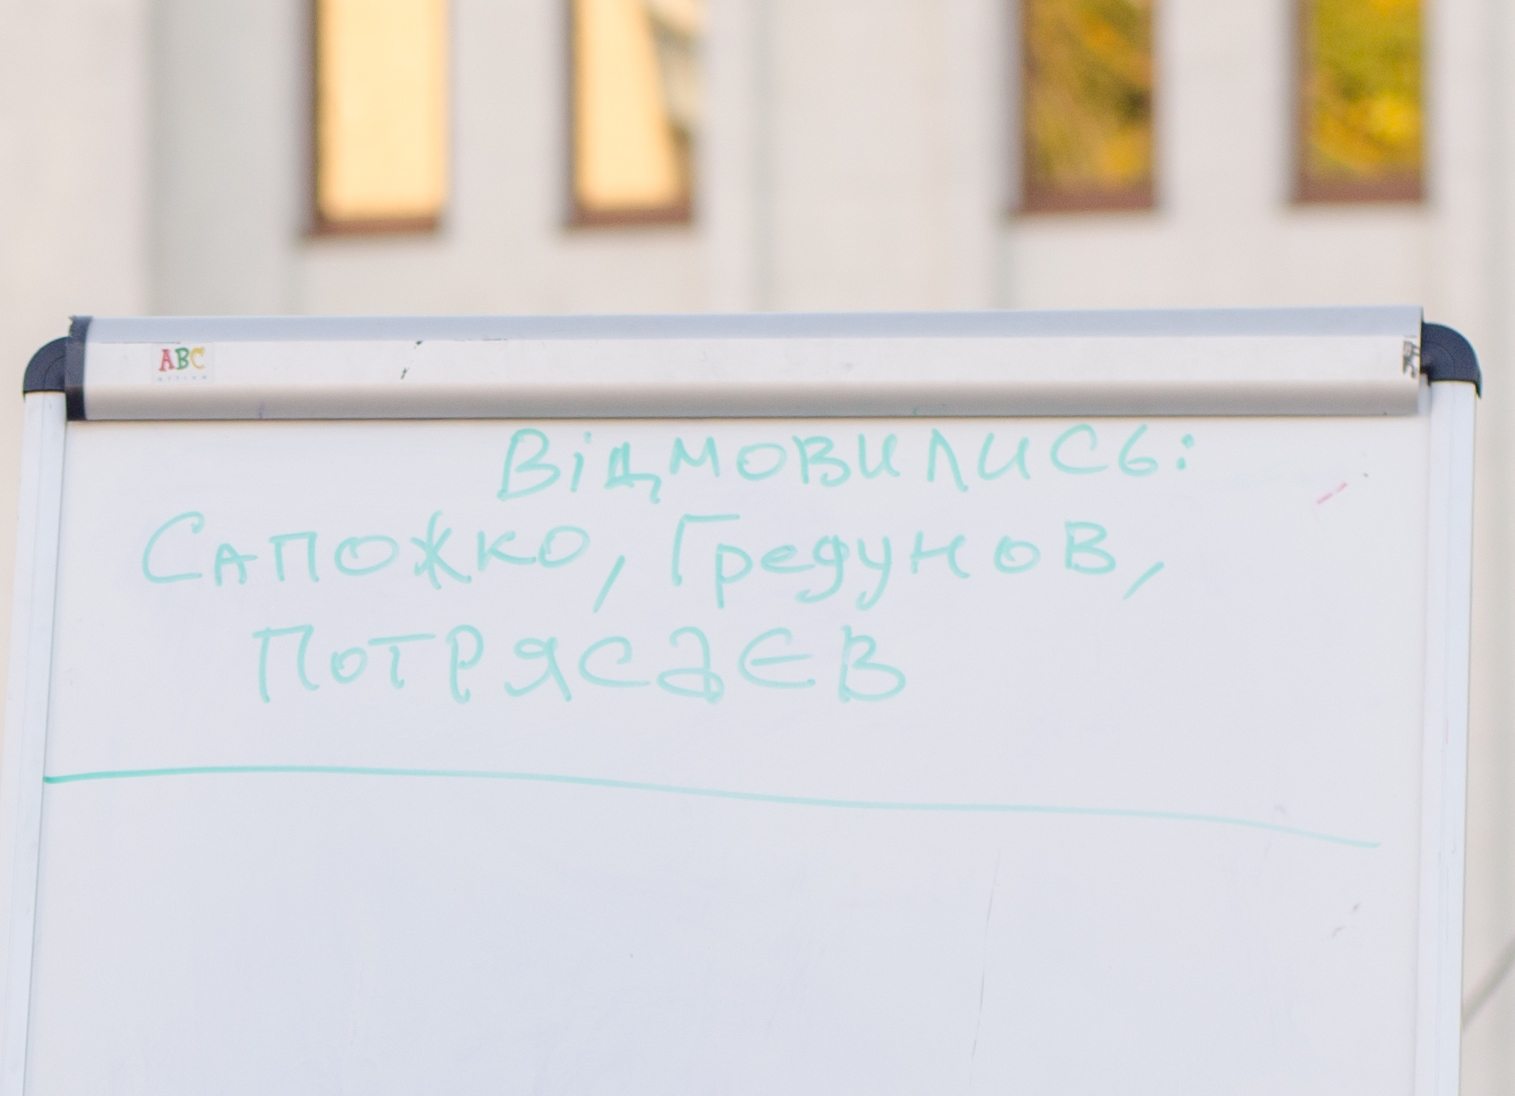 ABC
Відмовились:
Сапожко, Гредунов,
Потрясаєв